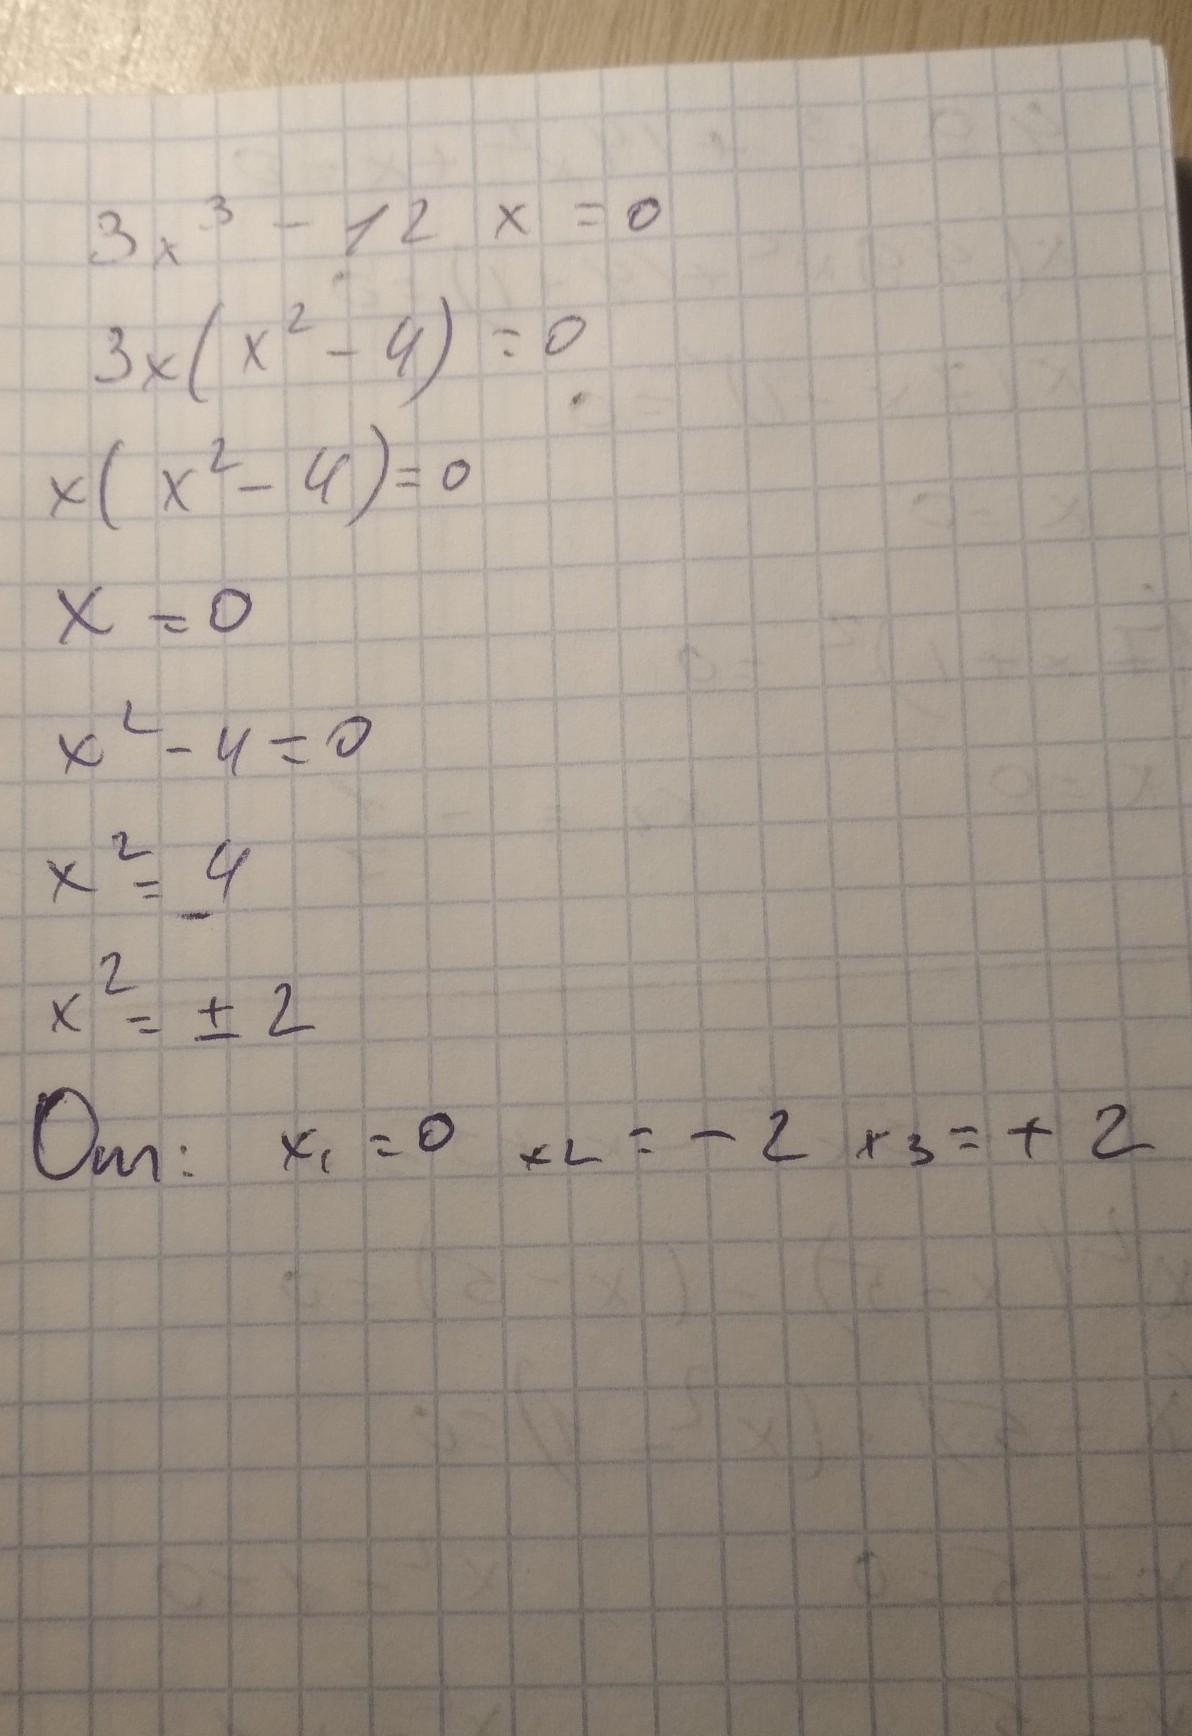 3x³ - 12 x = 0
3x(x² - 4) = 0
x(x² - 4) = 0
x = 0
x² - 4 = 0
x² = 4
x² = ± 2
От: x₁ = 0 x2 = - 2 x3 = + 2